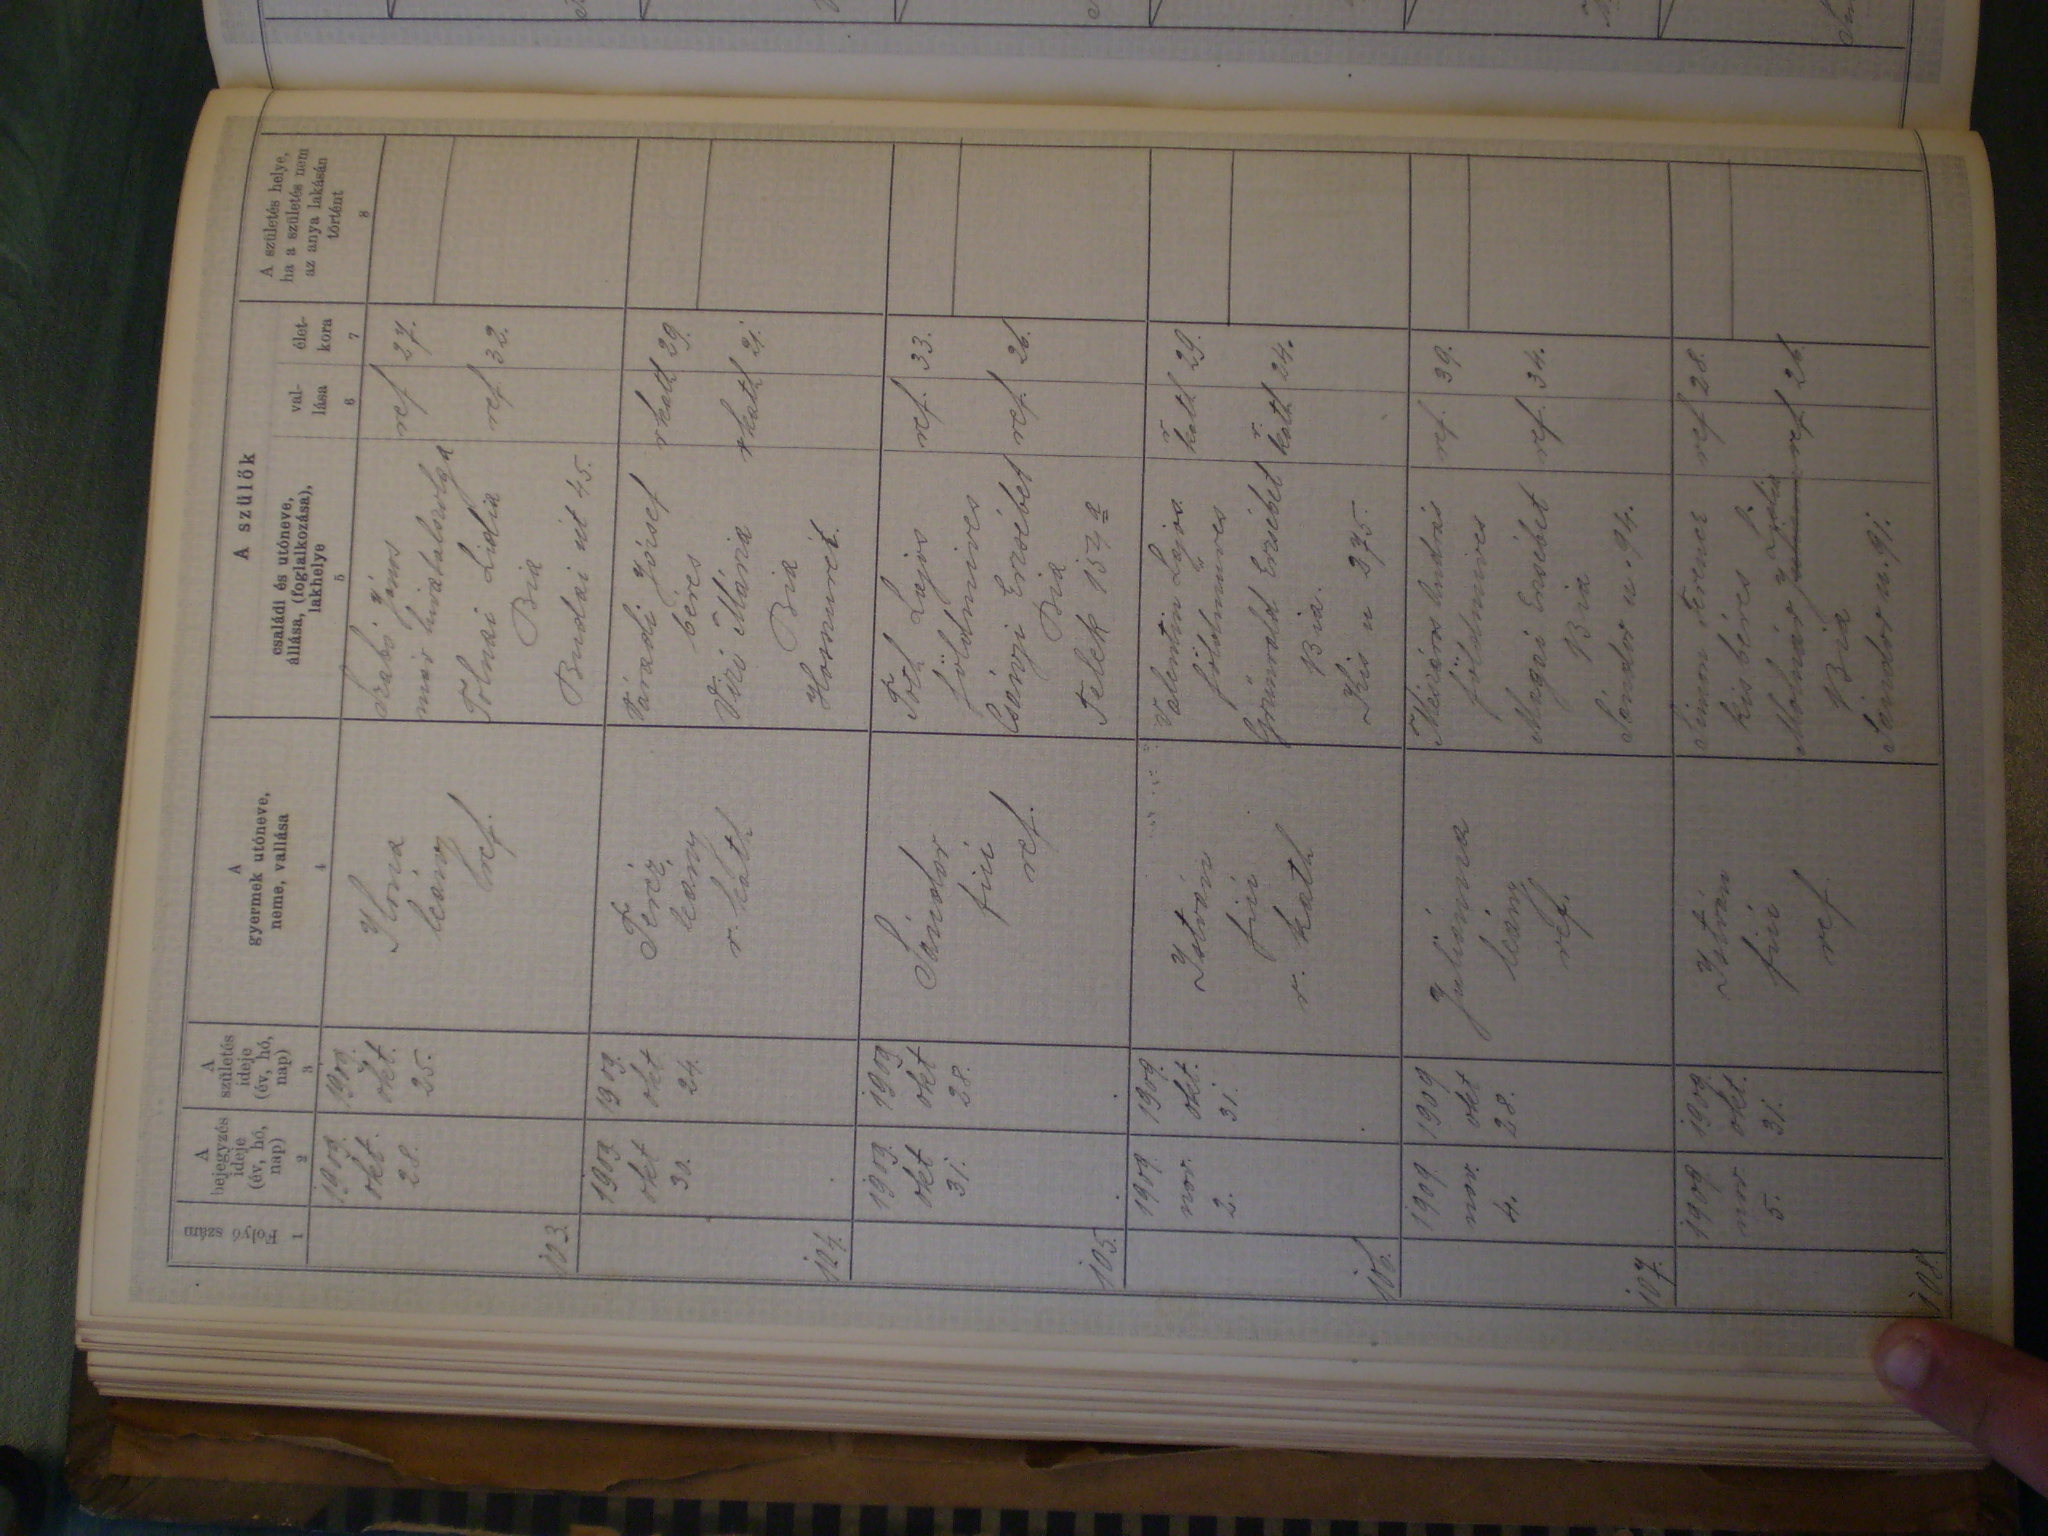 Folyó szám
1
A
bejegyzés
ideje
(év, hó,
nap)
2
A
születés
ideje
(év, hó,
nap)
3
A
gyermek utóneve,
neme, vallása
4
A szülők
családi és utóneve,
állása, (foglalkozása),
lakhelye
5
val-
lása
6
élet-
kora
7
A születés helye,
ha a születés nem
az anya lakásán
történt
8
103.
1909.
okt.
28.
1909.
okt.
25.
Ilona
leány
ref.
Szabó János
ref
27.
Tolnai Lidia
ref
32.
Bia
Budai út 45.
104.
1909
okt
30.
1909.
okt
24.
Teréz
leány
r. kath
Váradi József
rkath
29.
béres
Vizi Mária
rkath
21.
Bia
105.
1909.
okt
31.
1909
okt
28.
Sándor
fiú
ref.
Tóth Lajos
ref.
33.
földmives
Csányi Erzsébet
ref
26.
Bia
Telek 154 a
106.
1909.
nov.
2.
1909.
okt.
31.
István
fiú
r. kath
Valentin Lajos
r.
kath
29.
földmives
Grünwald Erzsébet
r.
kath
24.
Bia.
Kis u 375.
107.
1909.
nov.
4.
1909
okt
28.
Julianna
leány
ref.
Mészáros András
ref.
39.
földmives
Magai Erzsébet
ref.
34.
Bia
Sándor u. 94.
108.
1909
nov.
5.
1909.
okt.
31.
István
fiú
ref
Simon Ferenc
ref
28.
kis béres
Lidia
Molnár
ref
26.
Bia
Sándor u. 91.